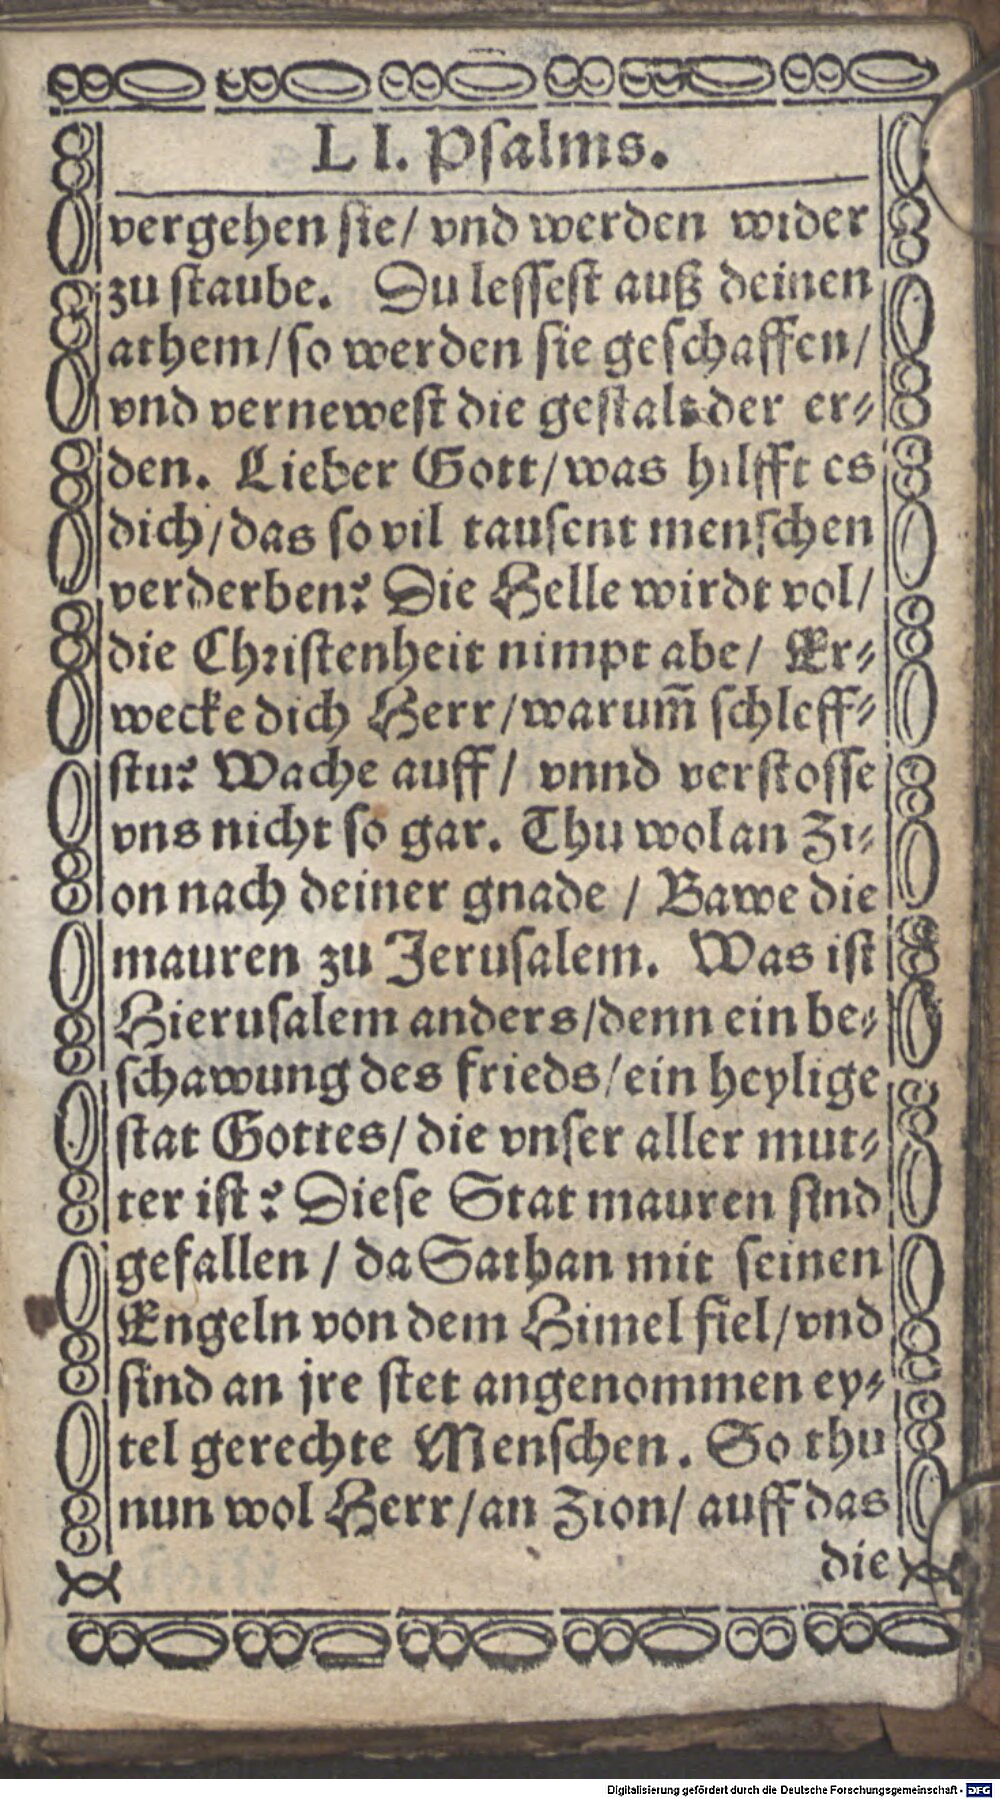 L I. Psalms.
vergehen sie/ vnd werden wider
zu staube. Du lessest auß deinen
athem/so werden sie geschaffen/
vnd vernewest die gestalt der er⸗
den. Lieber Gott/was hilfft es
dich/das so vil tausent menschen
verderben? Die Helle wirdt vol/
die Christenheit nimpt abe/ Er⸗
wecke dich Herr/warum̃ schleff⸗
stu? Wache auff/ vnnd verstosse
vns nicht so gar. Thu wol an Zi⸗
on nach deiner gnade / Bawe die
mauren zu Jerusalem. Was ist
Hierusalem anders/denn ein be⸗
schawung des frieds/ein heylige
stat Gottes/die vnser aller mut⸗
ter ist? Diese Stat mauren sind
gefallen / da Sathan mit seinen
Engeln von dem Himel fiel/vnd
sind an jre stet angenommen ey⸗
tel gerechte Menschen. So thu
nun wol Herr/an Zion/ auff das
die
Digitalisierung gefördert durch die Deutsche Forschungsgemeinschaft - DFG